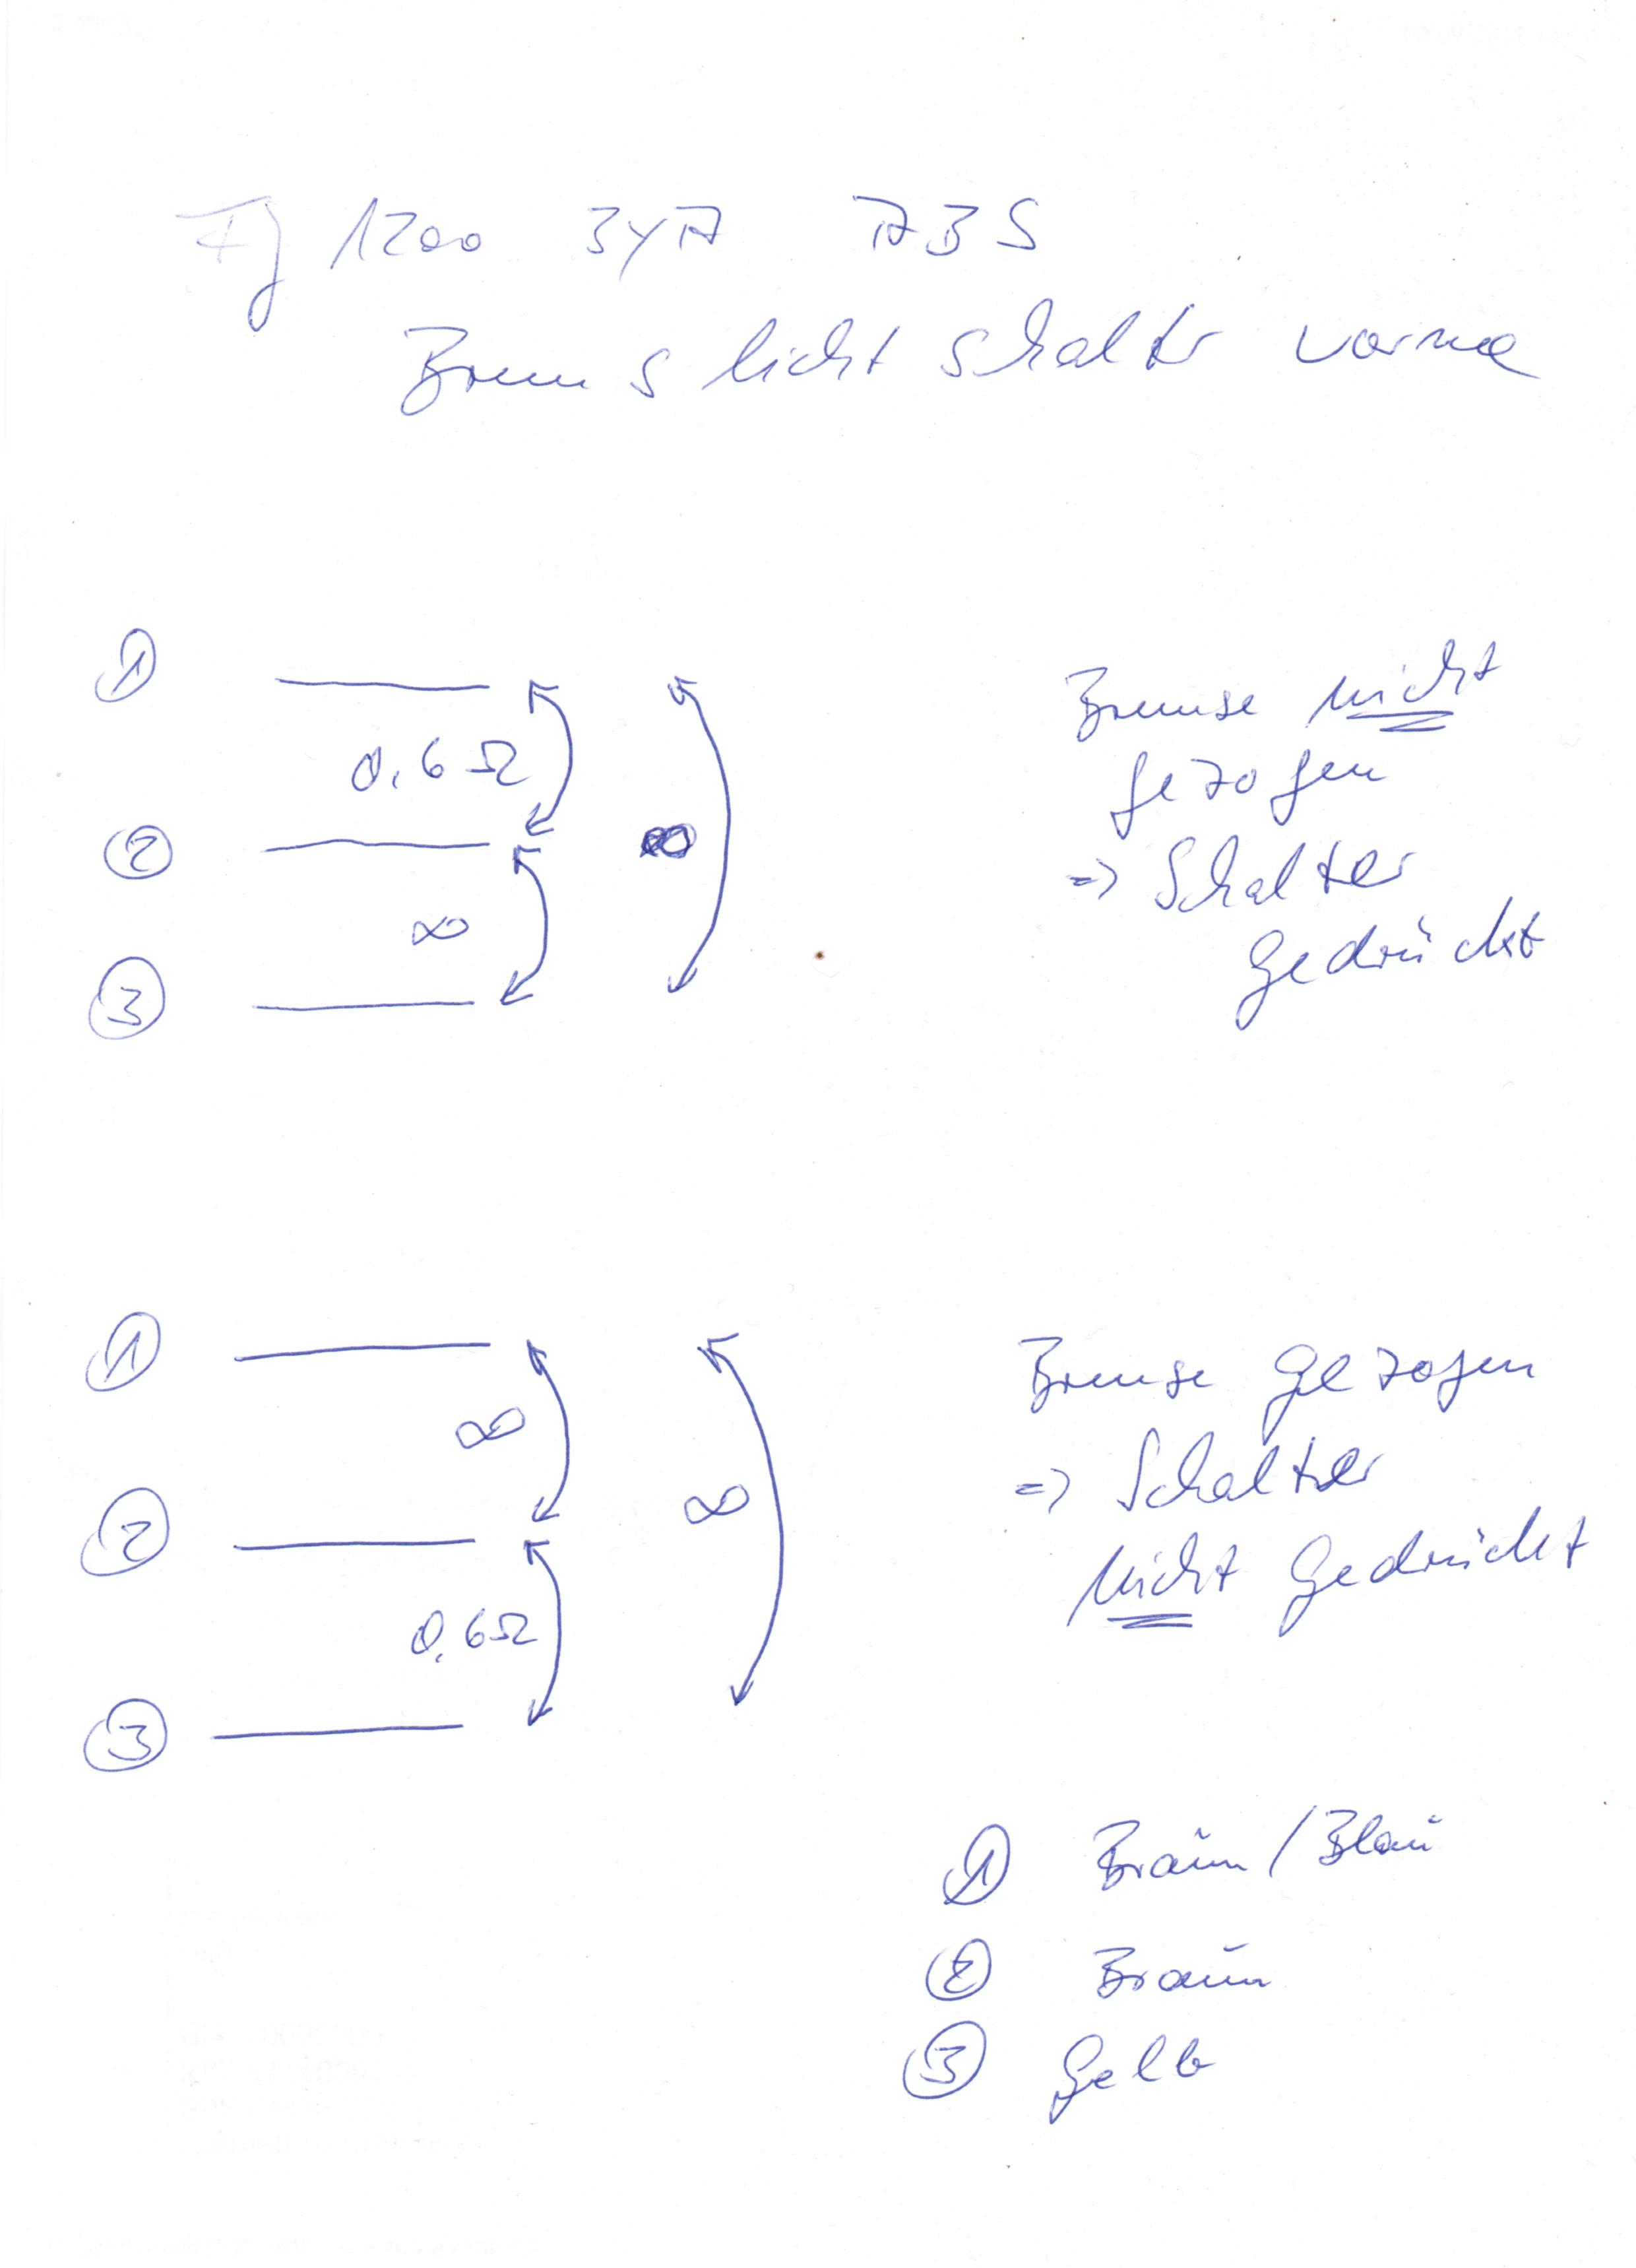 FJ 1200 3YA ABS
Bremslichtschalter vorne
①
0.6 Ω
②
∞
∞
③
Bremse nicht
gezogen
=> Schalter
gedrückt
①
∞
②
∞
0.6Ω
③
Bremse gezogen
=> Schalter
nicht gedrückt
① Braun/Blau
② Braun
③ Gelb